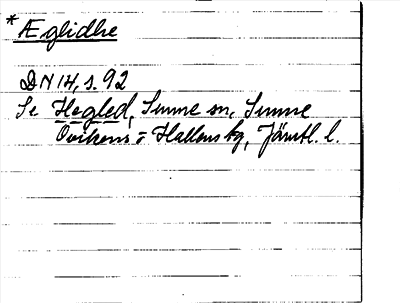 * Æglidhe
DN 14, s. 92
Se Hegled, Sunne sn, Sunne
Ovikens = Hallens tg, Jämtl. l.